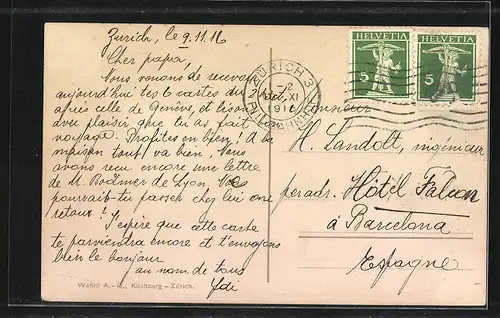 Zurich, le 9.11.16
Cher papa,
Nous venons de recevoir
aujourd'hui tes 2 cartes du
après celle de Genève, et lisons
avec plaisir que tu as fait
voyage. Profites en bien! A la
maison tout va bien. Nous
avons reçu encore une lettre
de M. Bodmer de Lyon.
pourrait-tu passer chez lui one
retour? J'espère que cette carte
te parviendra encore et t'envoyons
bien le bonjour
au nom de tous
Wehrli A.-G., Kilchberg – Zürich.
HELVETIA
5
HELVETIA
5
ZÜRICH 3
XI
1916
Monsieur
H. Landolt, ingénieur
per adr. Hôtel Falcon
à Barcelona
Espagne